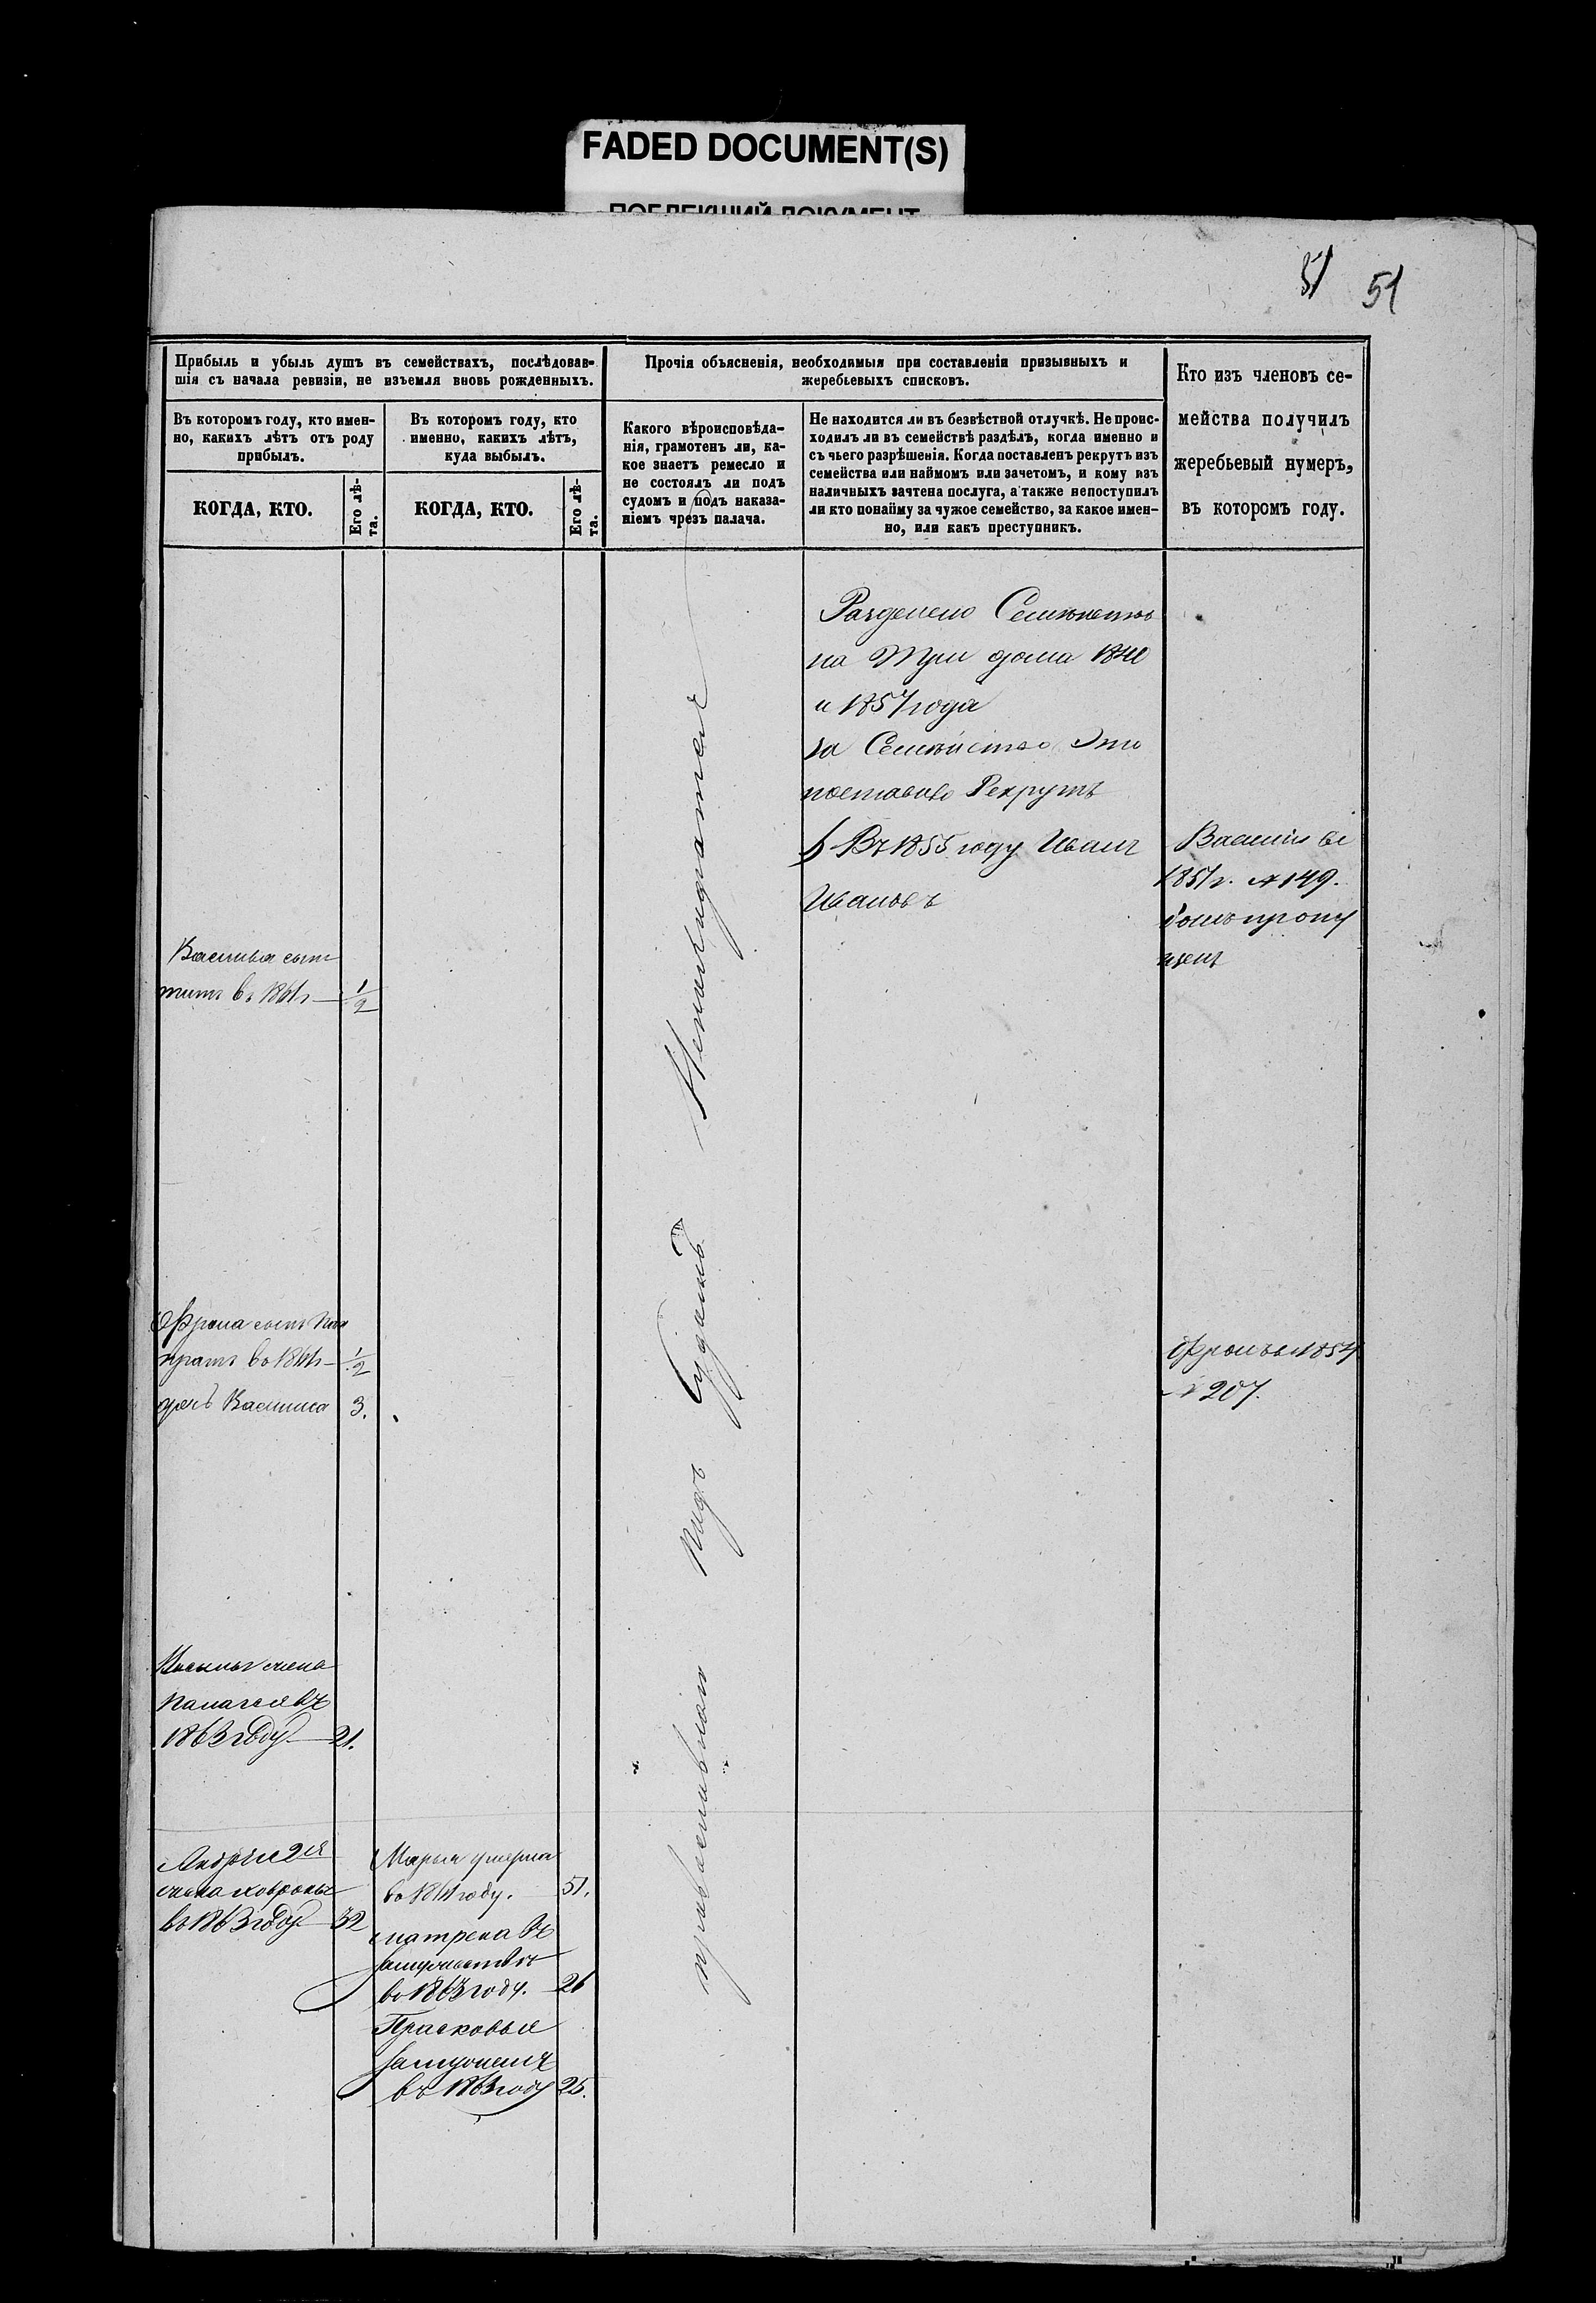 FADED DOCUMENT(S)
ПОБЛЕКШИЙ ДОКУМЕНТ
51 51
Прибыль и убыль душъ въ семействахъ, послѣдовав-
шія съ начала ревизіи, не изъемля вновь рожденныхъ.
Въ которомъ году, кто имен-
но, какихъ лѣтъ отъ роду
прибылъ.
КОГДА, КТО.
Его лѣ-
та.
Въ которомъ году, кто
именно, какихъ лѣтъ,
куда выбылъ.
КОГДА, КТО.
Его лѣ-
та.
Прочія объясненія, необходимыя при составленіи призывныхъ и
жеребьевыхъ списковъ.
Какого вѣроисповѣда-
нія, грамотенъ ли, ка-
кое знаетъ ремесло и
не состоялъ ли подъ
судомъ и подъ наказа-
ніемъ чрезъ палача.
Не находится ли въ безвѣстной отлучкѣ. Не проис-
ходилъ ли въ семействѣ раздѣлъ, когда именно и
съ чьего разрѣшенія. Когда поставленъ рекрутъ изъ
семейства или наймомъ или зачетомъ, и кому изъ
наличныхъ зачтена послуга, а также непоступилъ
ли кто понайму за чужое семейство, за какое имен-
но, или какъ преступникъ.
Кто изъ членовъ се-
мейства получилъ
жеребьевый нумеръ,
въ которомъ году.
Разделено Семѣйство
на Три дома
и 1857 года
за Семѣйство Это
поставлѣ Рекрутъ
Въ 1855 году Иванъ
Ивановъ
Василій въ
1851г. № 149.
Василья сынъ
титъ въ 1861г — 1/2
Ефрема сынъ
въ 1861г — 1/2
дочь Василиса 3.
1854
№ 207.
жена
палагея въ
1863 году — 21.
Андрея 2я
жена
въ 1863 году — 32
Марья умерла
въ 1861 году. 51.
матрена въ
замужествѣ
въ 1863 году. 26
Прасковья
замужемъ
въ 1863 году 25.
православнаго подъ Судомъ